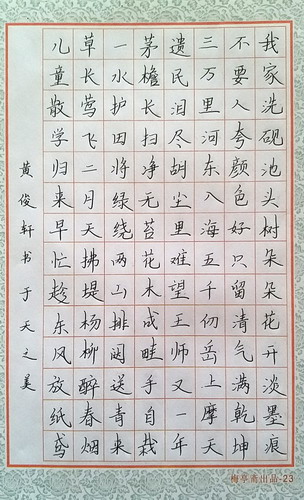 我家洗砚池头树朵朵花开淡墨痕
不要人夸颜色好只留清气满乾坤
三万里河东入海五千仞岳上摩天
遗民泪尽胡尘里难望王师又一年
茅檐长扫净无苔花木成畦手自栽
一水护田将绿绕两山排闼送青来
草长莺飞二月天拂堤杨柳醉春烟
儿童散学归来早忙趁东风放纸鸢
黄俊轩书于天之美
梅亭斋出品-23